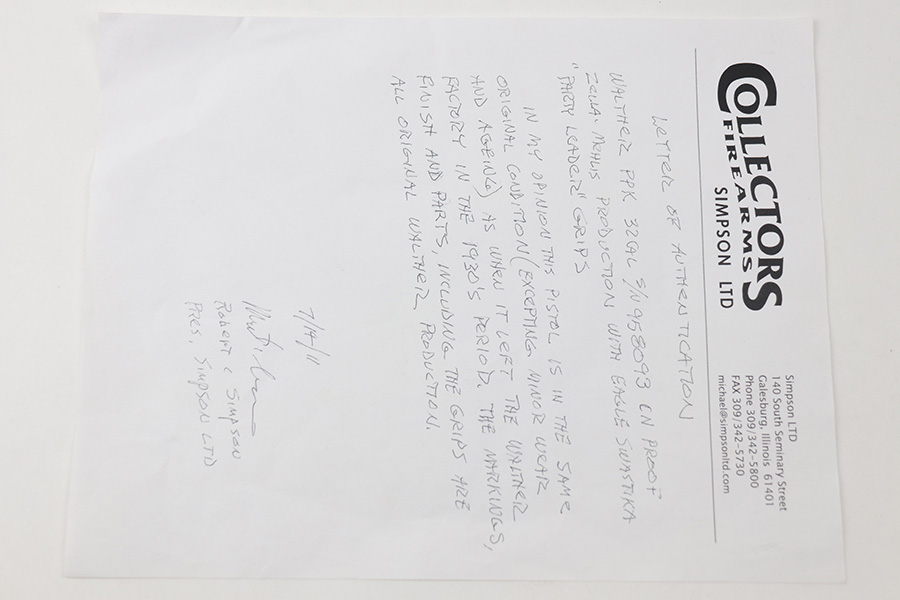 COLLECTORS
FIREARMS
SIMPSON LTD
Simpson LTD
140 South Seminary Street
Galesburg, Illinois 61401
Phone 309/342-5800
FAX 309/342-5730
michael@simpsonltd.com
LETTER OF AUTHENTICATION
WALTHER PPK 32CAL S/N 958093 C/N PROOF
ZELLA-MEHLIS PRODUCTION WITH EAGLE SWASTIKA
"PARTY LEADER" GRIPS
IN MY OPINION THIS PISTOL IS IN THE SAME
ORIGINAL CONDITION (EXCEPTING MINOR WEAR
AND AGEING) AS WHEN IT LEFT THE WALTHER
FACTORY IN THE 1930'S PERIOD. THE MARKINGS,
FINISH AND PARTS, INCLUDING THE GRIPS ARE
ALL ORIGINAL WALTHER PRODUCTION.
7/14/11
ROBERT C SIMPSON
PRES, SIMPSON LTD